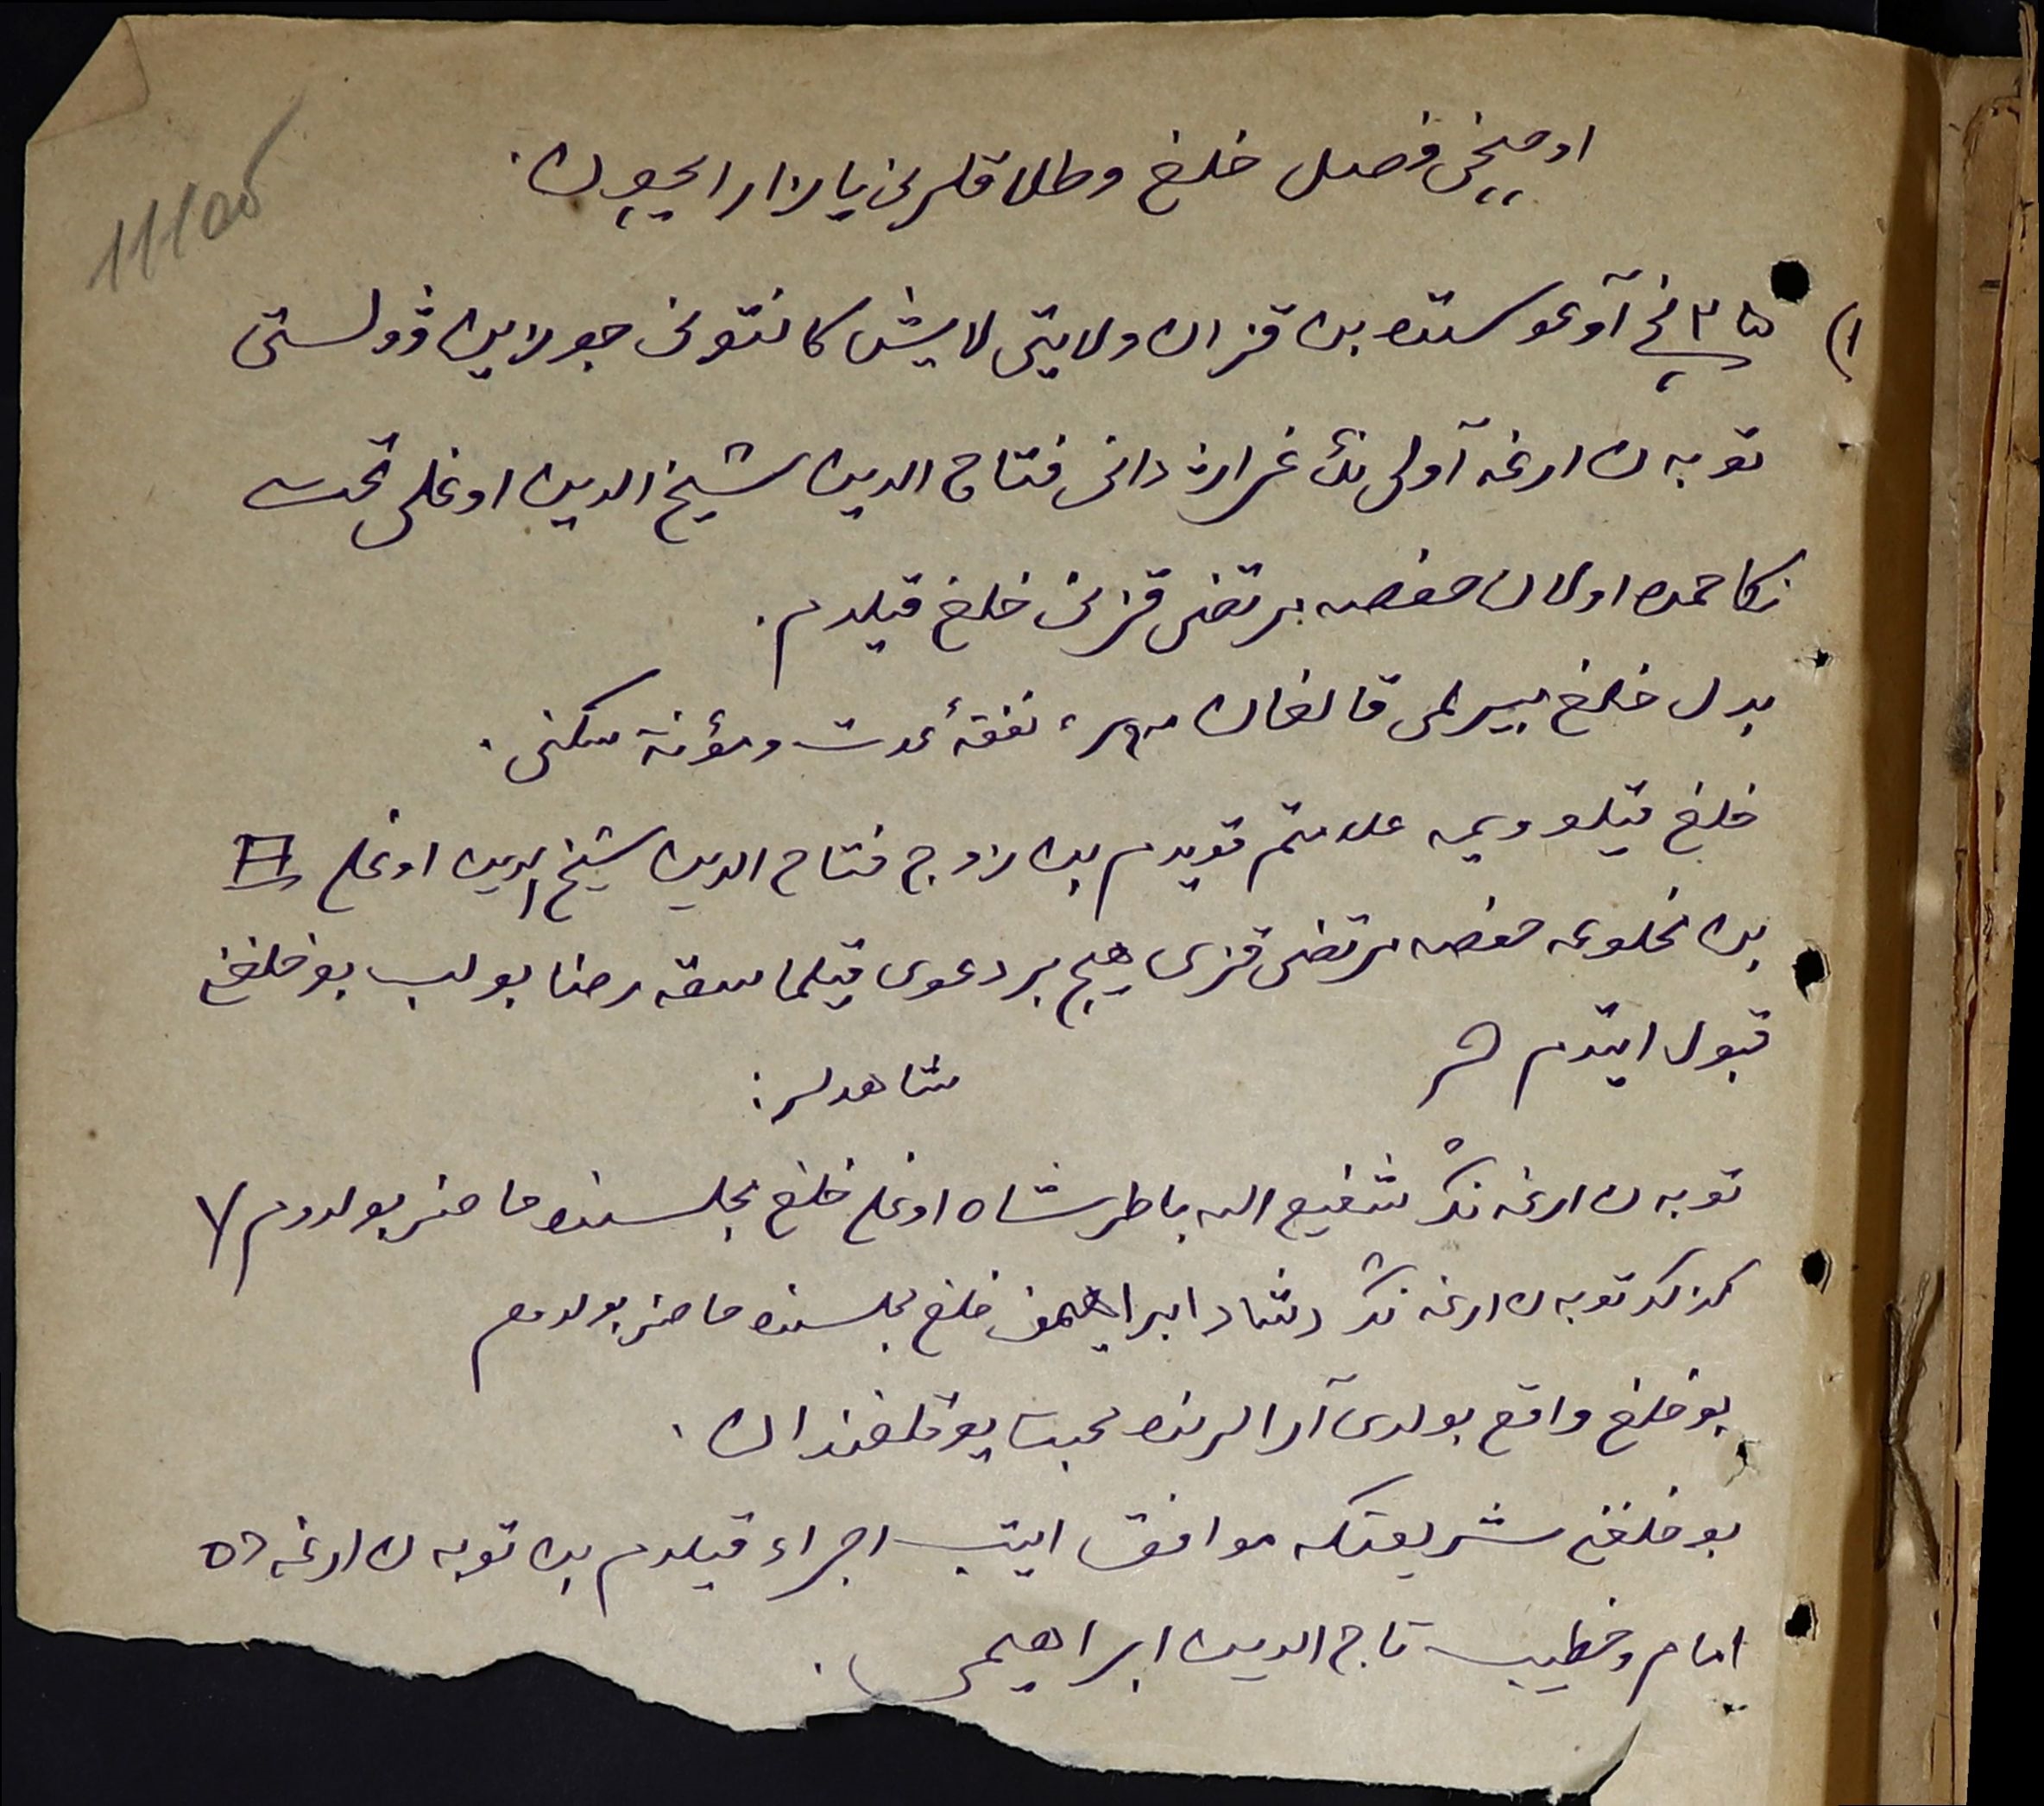 111об
اوچنچی فصل خلع وطلاقلرنی یازار ایچون.
۱) ۲۵ نچی آوغوستده بن قزان ولایتی لایش کانتونی جورلاین وولستی
توبه ن ارغه آولی نڭ غراژدانی فتاح الدین شیخ الدین اوغلی تحت
نکاحمده اولان حفصه مرتضی قزنی خلع قیلدم.
بدل خلع بیرلمی قالغان مهر، نفقهٔ عدت ومؤنة سکنی.
خلع قیلوویمه علامتم قویدم بن زوج فتاح الدین شیخ الدین اوغلی
بن مخلوعه حفصه مرتضی قزی هیچ بر دعوی قیلماسقه رضا بولب بو خلعنی
قبول ایتدم
شاهدلر:
توبه ن ارغه نڭ شفیع الله باطرشاه اوغلی خلع مجلسنده حاضر بولدم
کذلک توبه ن ارغه نڭ دلشاد ابراهیمف خلع مجلسنده حاضر بولدم
بو خلع واقع بولدی آرالرنده محبت یوقلغندان.
بو خلعنی شریعتکه موافق ایتب اجراء قیلدم بن توبه ن ارغه ده
امام وخطیب تاج الدین ابراهیمی.